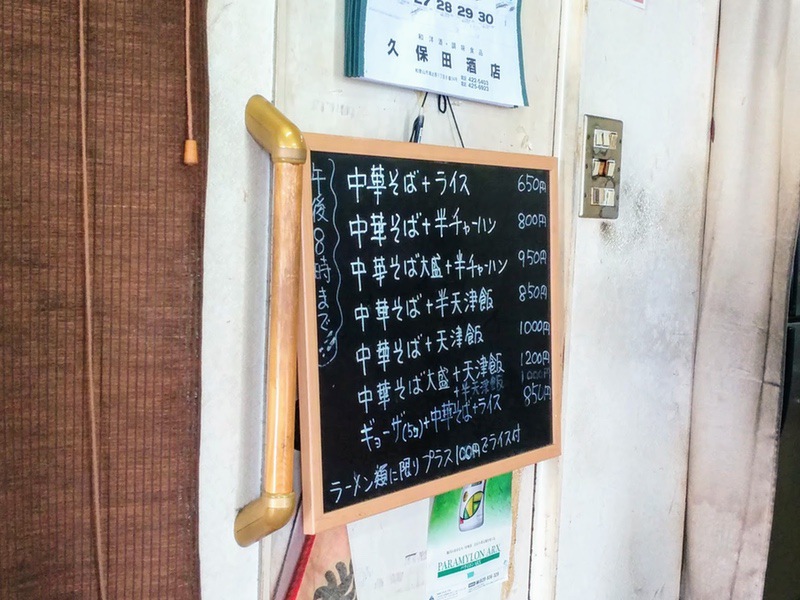 27 28 29 30
和洋酒・調味食品
久保田酒店
電話 422-5403
電話 425-6923
午後8時まで
中華そば+ライス 650円
中華そば+半チャーハン 800円
中華そば大盛+半チャーハン 950円
中華そば+半天津飯 850円
中華そば+天津飯 1000円
中華そば大盛+天津飯 1200円
+半天津飯 1000円
ギョーザ(5ヶ)+中華そば+ライス 850円
ラーメン類に限りプラス100円でライス付
PARAMYLON ARX